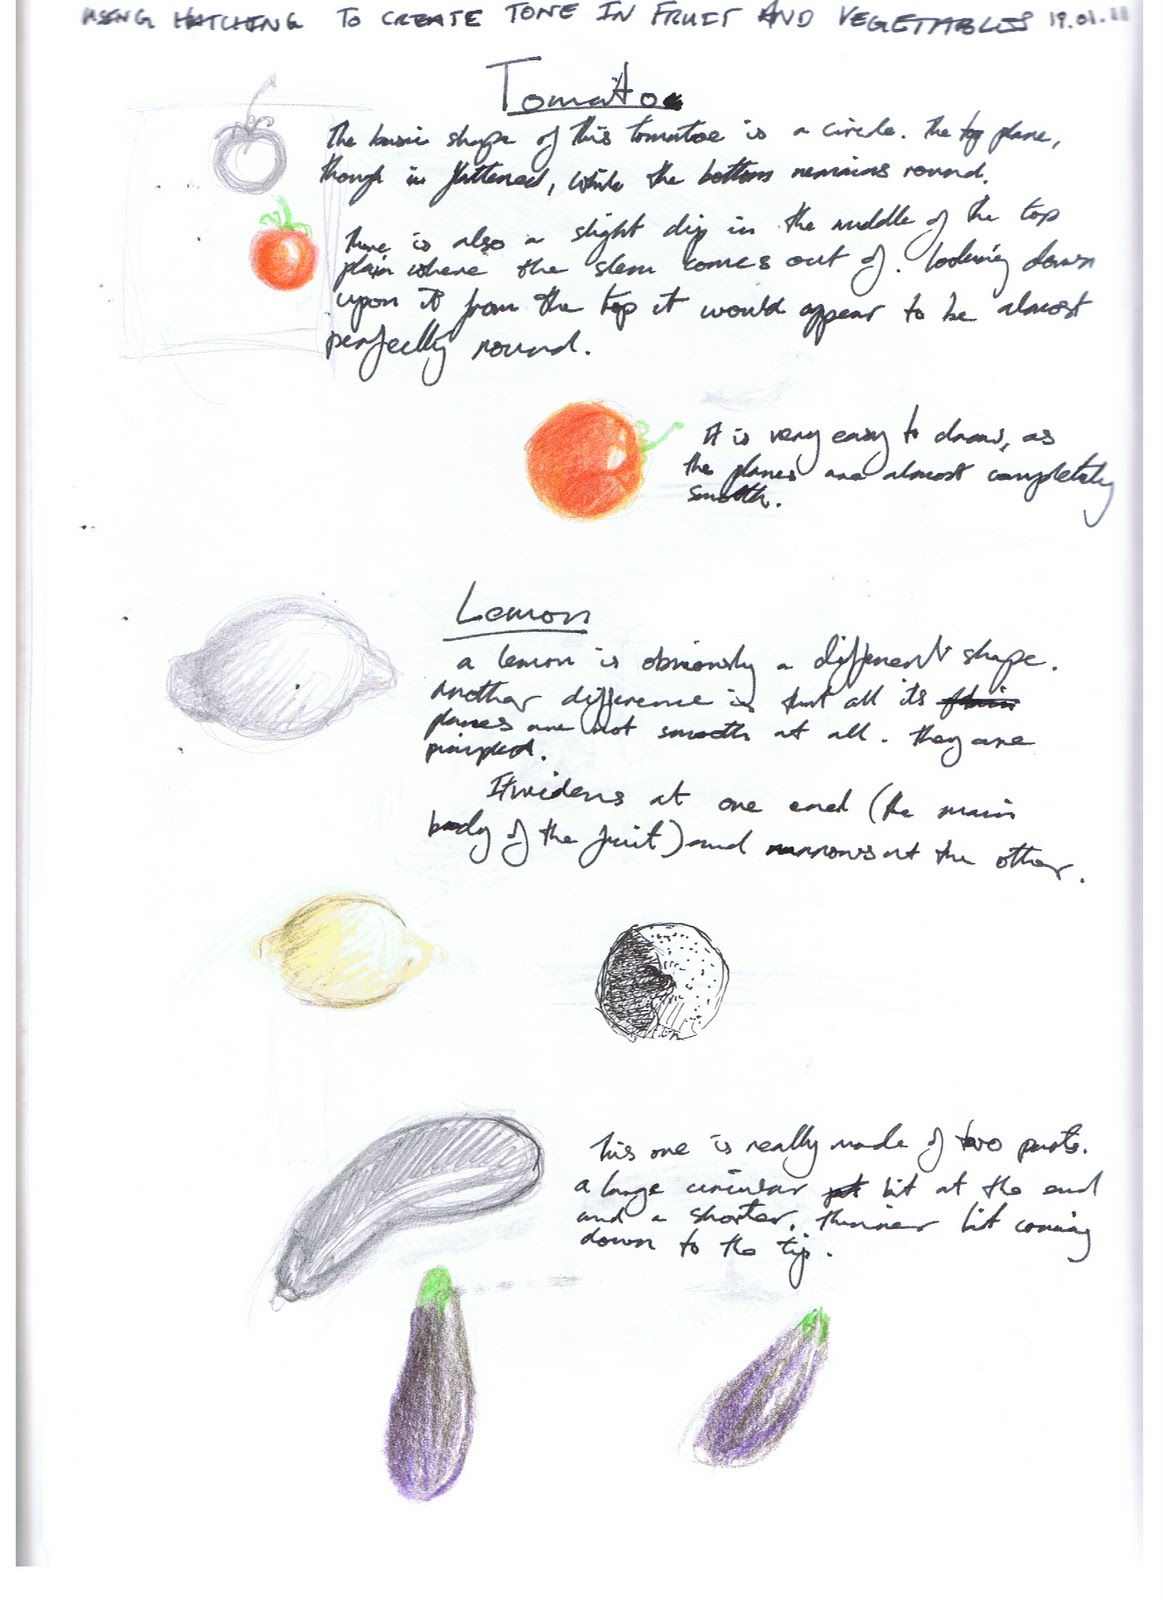 USING HATCHING TO CREATE TONE IN FRUIT AND VEGETABLES 19.01.11
Tomatoe
The basic shape of this tomatoe is a circle. The top plane,
though is flattened, while the bottom remains round.
There is also a slight dip in the middle of the top
plain where the stem comes out of. Looking down
upon it from the top it would appear to be almost
perfectly round.
It is very easy to draw, as
the planes are almost completely
smooth.
Lemon
a lemon is obviously a different shape.
Another difference is that all its
planes are not smooth at all. They are
pimpled.
It widens at one end (the main
body of the fruit) and narrows at the other.
This one is really made of two parts.
a large circular bit at the end
and a shorter, thinner bit coming
down to the tip.